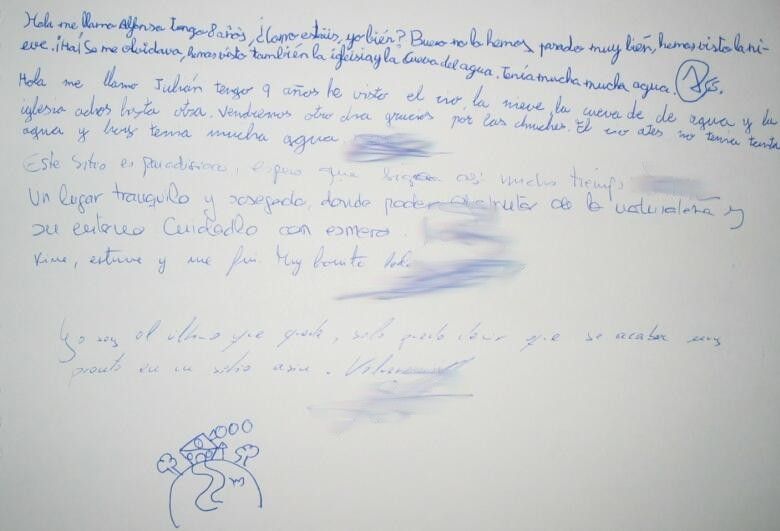 Hola me llamo Alfonso Tengo 8 años, ¿Como estáis, yo bién? Bueno no lo hemos pasado muy bién, hemos visto la ni-
eve. ¡Ha! Se me olvidava, hemos visto también la iglesia y la Cueva del agua. Tenia mucha mucha agua.
Hola me llamo Julián tengo 9 años he visto el rio, la nieve, la cueva de de agua y la
iglesia adios hasta otra. Vendremos otro dia gracias por las chuches. El rio no tenia tanta
agua y tenia mucha agua.
Este sitio es paradisiaco, espero que siga así mucho tiempo
Un lugar tranquilo y sosegado, donde poder disfrutar de la naturaleza y
su entorno Cuidadlo con esmero.
Vine, estuve y me fui. Muy bonito todo
Yo soy el último que queda, solo puedo decir que se acaba muy
pronto en un sitio asi.